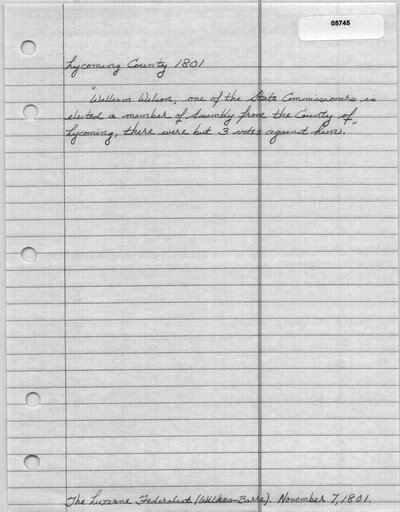 05745
Lycoming County 1801
"William Wilson, one of the State Commissioners is
elected a member of Assembly from the County of
Lycoming, there were but 3 votes against him."
The Luzerne Federalist (Wilkes-Barre). November 7, 1801.